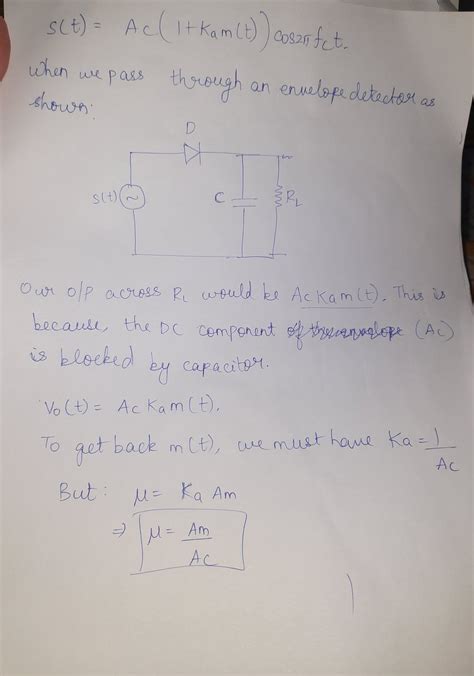 s(t) = Ac(1+Kam(t)) cos2πfct.
when we pass through an envelope detector as
shown:
D
s(t)
C
RL
Our o/p across RL would be AcKam(t). This is
because, the DC component (Ac)
is blocked by capacitor.
Vo(t) = AcKam(t).
To get back m(t), we must have Ka = 1/Ac
But: μ = Ka Am
⇒ μ = Am/Ac